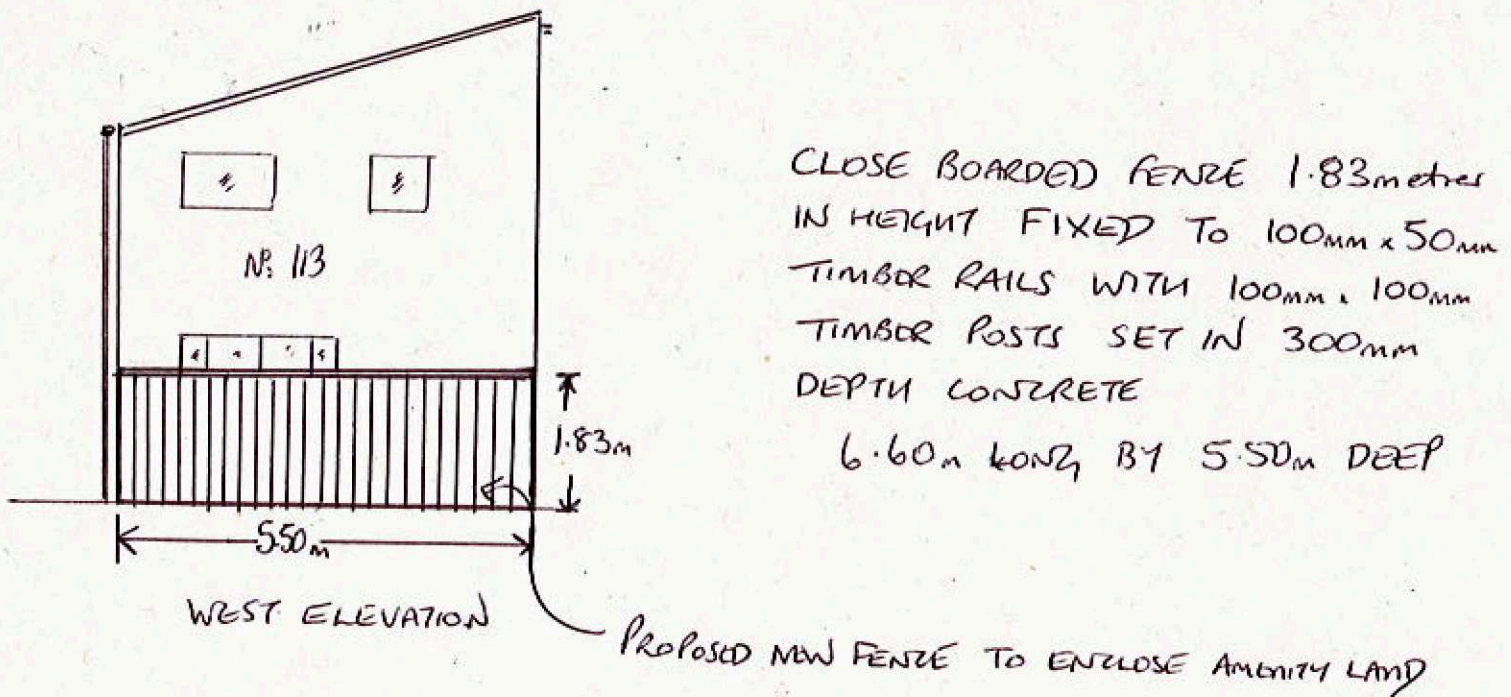 Nº: 113
1.83m
5.50m
WEST ELEVATION
CLOSE BOARDED FENCE 1.83metres
IN HEIGHT FIXED TO 100mm x 50mm
TIMBER RAILS WITH 100mm x 100mm
TIMBER POSTS SET IN 300mm
DEPTH CONCRETE
6.60m LONG BY 5.50m DEEP
PROPOSED NEW FENCE TO ENCLOSE AMENITY LAND